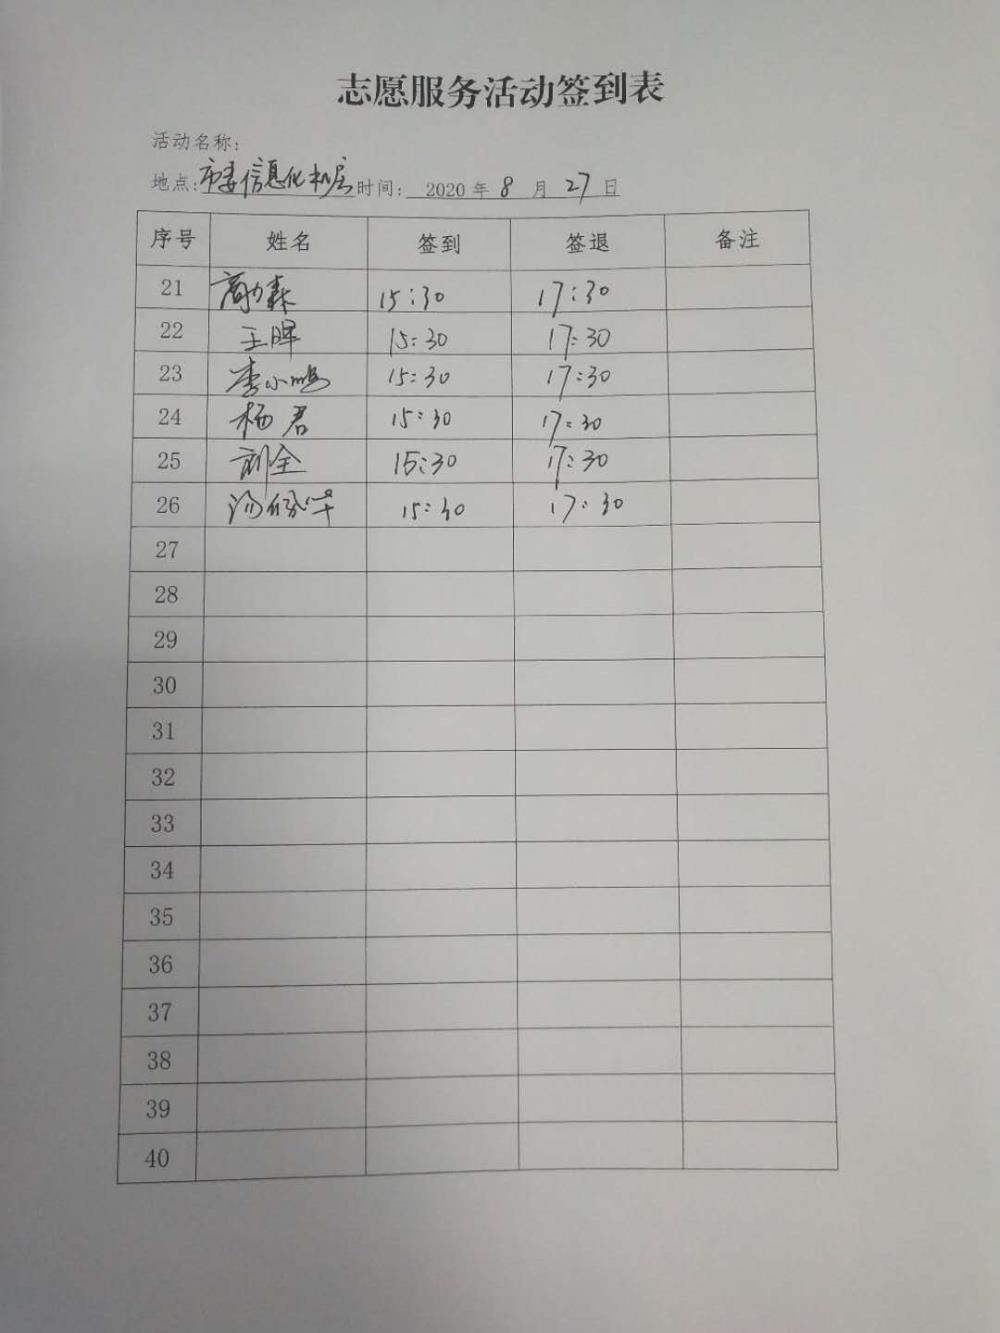 志愿服务活动签到表
活动名称:
地点:市委信息化机房 时间: 2020年8月27日
序号 姓名 签到 签退 备注
21 15:30 17:30
22 王晖 15:30 17:30
23 李小鹏 15:30 17:30
24 杨君 15:30 17:30
25 刘全 15:30 17:30
26 15:30 17:30
27
28
29
30
31
32
33
34
35
36
37
38
39
40